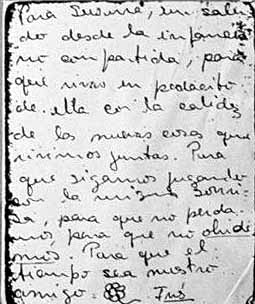 Para Susana, un salu
do desde la infancia
no compartida, para
que viva un pedacito
de ella con la calidez
de las nuevas cosas que
vivimos juntas. Para
que sigamos jugando
con la misma sonri-
sa, para que no perda-
mos, para que no olvide
mos. Para que el
tiempo sea nuestro
amigo.